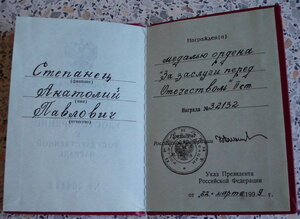 Степанец
(фамилия)
Анатолий
(имя)
Павлович
(отчество)
Награжден(а)
медалью ордена
"За заслуги перед
Отечеством" II ст.
Награда № 32132
Президент
Российской Федерации
Указ Президента
Российской Федерации
от 22 марта 1999 г.